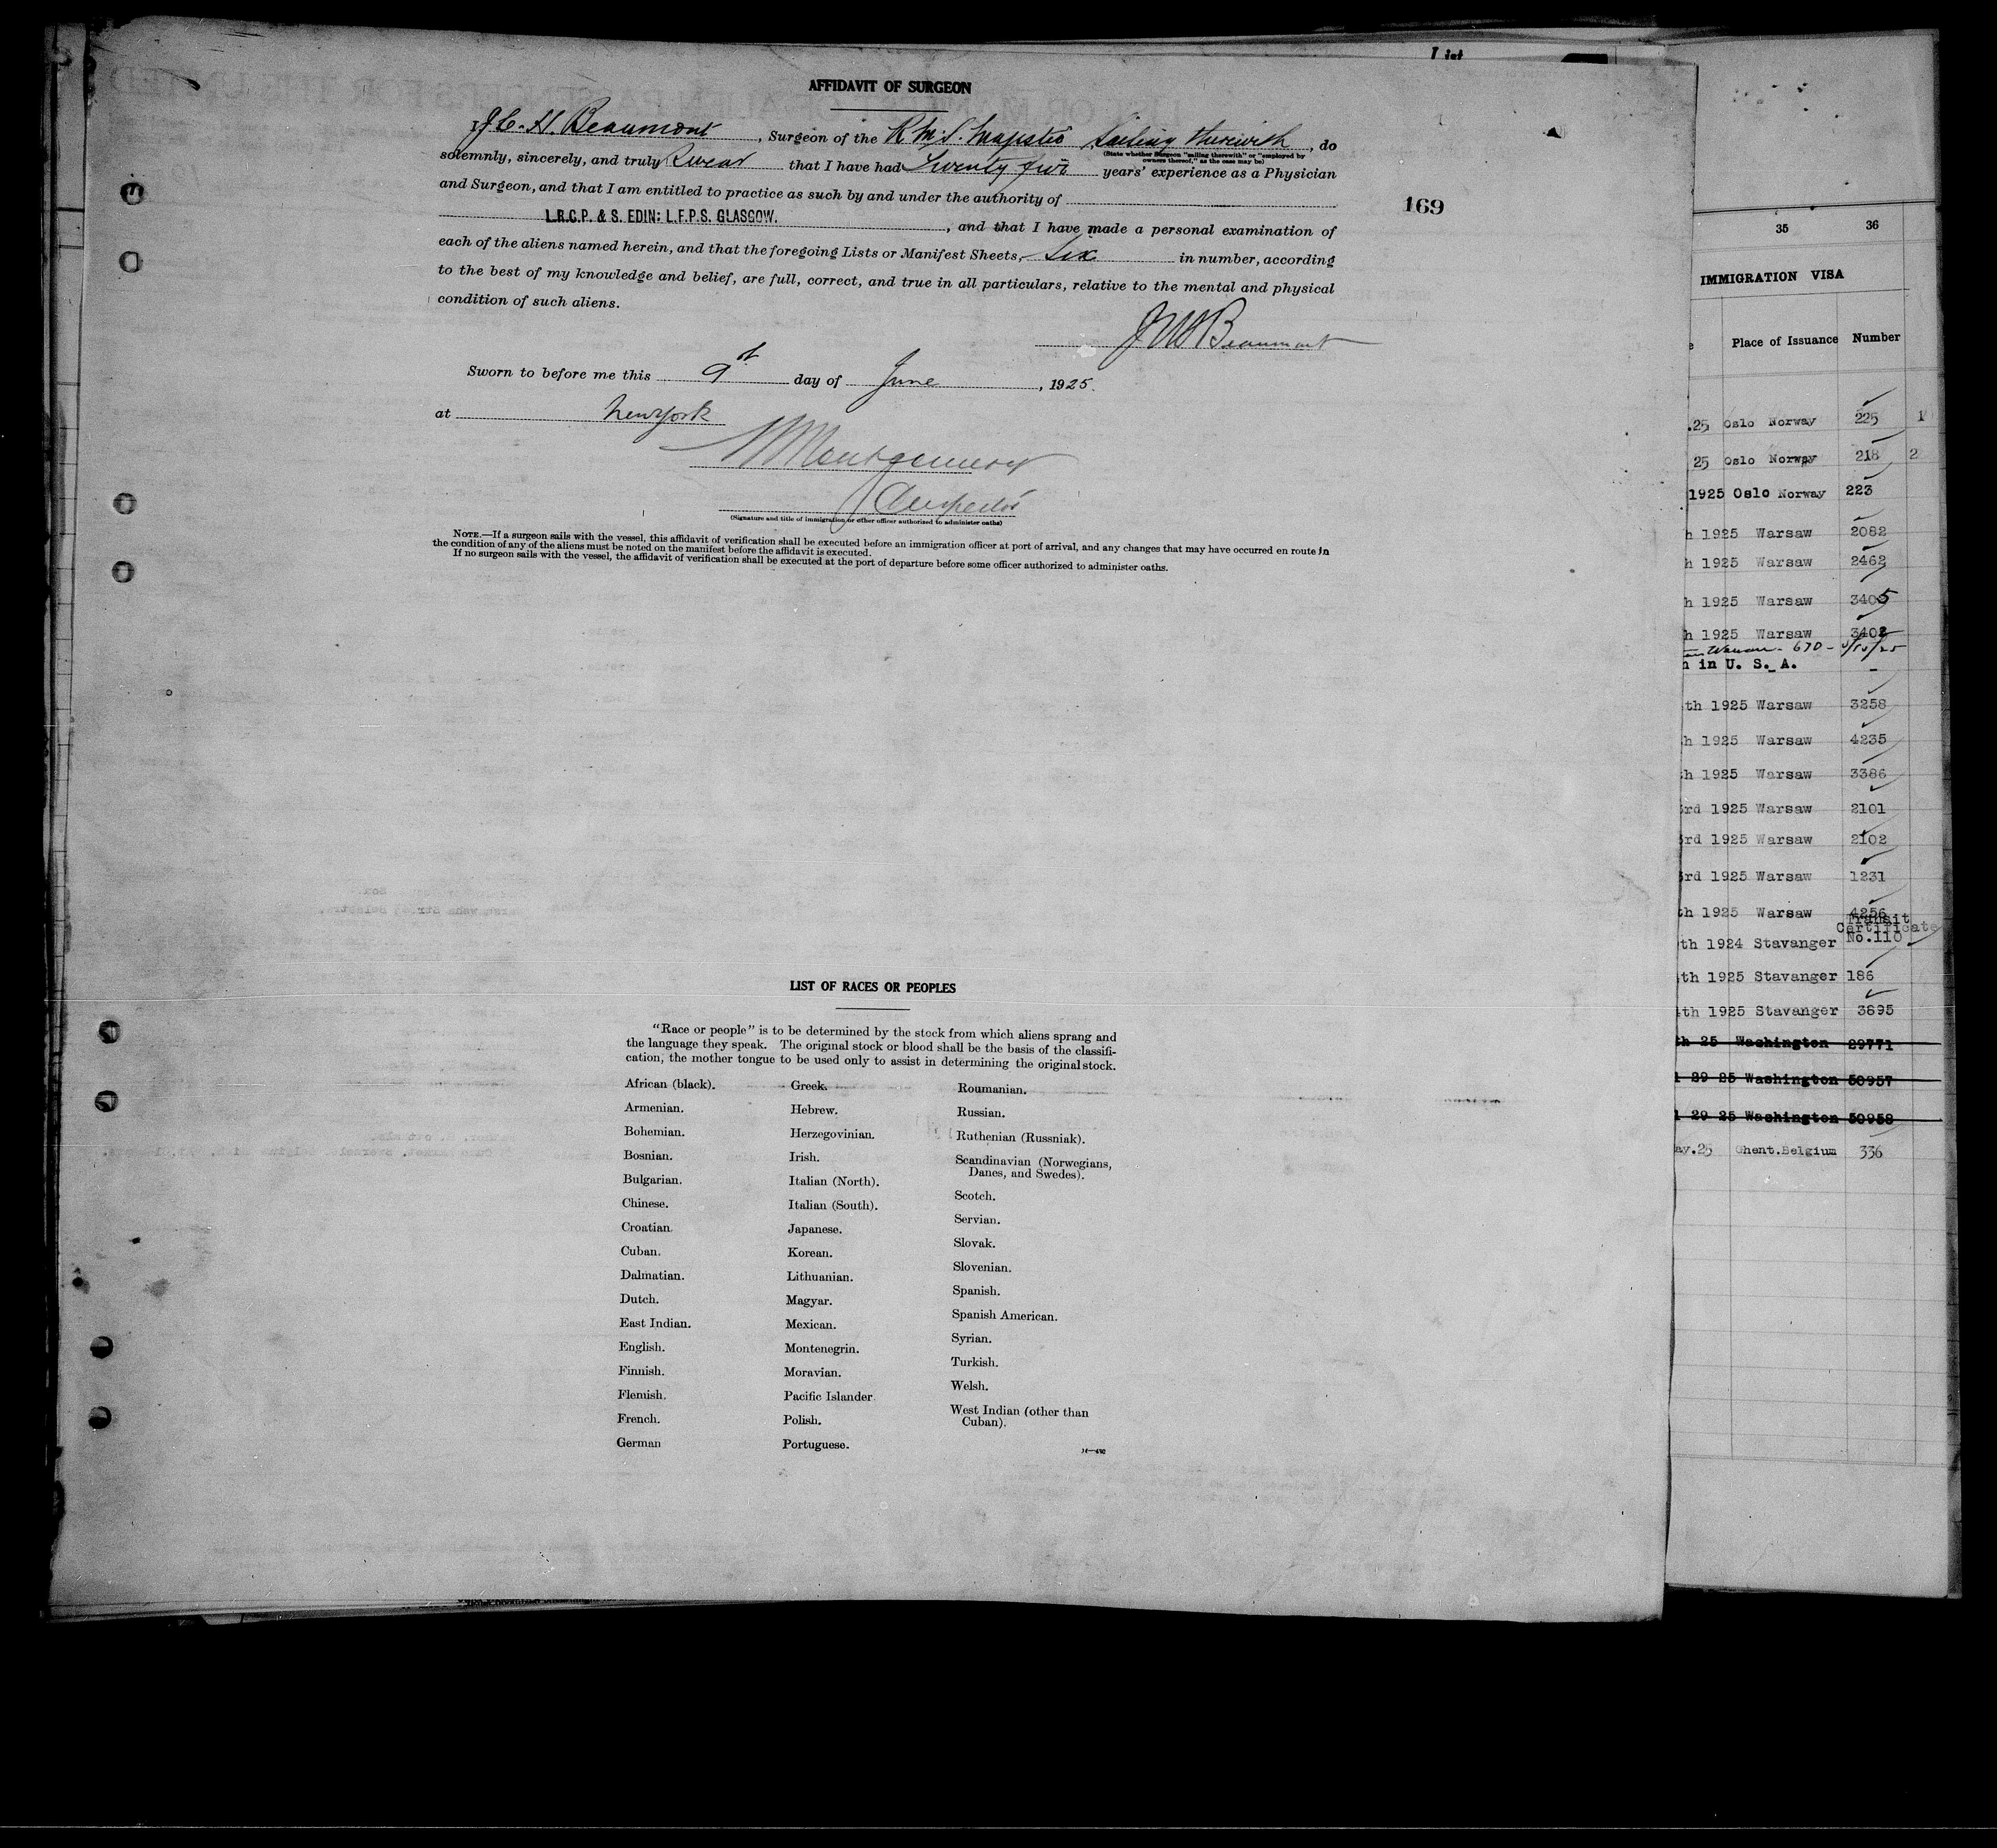 List
AFFIDAVIT OF SURGEON
I, J.C.H. Beaumont, Surgeon of the R.M.S. Majestic Sailing therewith, do
(State whether Surgeon "sailing therewith" or "employed by
owners thereof," as the case may be)
solemnly, sincerely, and truly Swear that I have had Twenty five years' experience as a Physician
and Surgeon, and that I am entitled to practice as such by and under the authority of
169
L.R.C.P. & S. EDIN: L.F.P.S. GLASGOW. , and that I have made a personal examination of
each of the aliens named herein, and that the foregoing Lists or Manifest Sheets, Six in number, according
to the best of my knowledge and belief, are full, correct, and true in all particulars, relative to the mental and physical
condition of such aliens.
Beaumont
Sworn to before me this 9th day of June, 1925.
at New York
Montgomery
Inspector
(Signature and title of immigration or other officer authorized to administer oaths)
NOTE.—If a surgeon sails with the vessel, this affidavit of verification shall be executed before an immigration officer at port of arrival, and any changes that may have occurred en route in
the condition of any of the aliens must be noted on the manifest before the affidavit is executed.
If no surgeon sails with the vessel, the affidavit of verification shall be executed at the port of departure before some officer authorized to administer oaths.
LIST OF RACES OR PEOPLES
"Race or people" is to be determined by the stock from which aliens sprang and
the language they speak. The original stock or blood shall be the basis of the classifi-
cation, the mother tongue to be used only to assist in determining the original stock.
African (black).
Armenian.
Bohemian.
Bosnian.
Bulgarian.
Chinese.
Croatian.
Cuban.
Dalmatian.
Dutch.
East Indian.
English.
Finnish.
Flemish.
French.
German
Greek.
Hebrew.
Herzegovinian.
Irish.
Italian (North).
Italian (South).
Japanese.
Korean.
Lithuanian.
Magyar.
Mexican.
Montenegrin.
Moravian.
Pacific Islander.
Polish.
Portuguese.
Roumanian.
Russian.
Ruthenian (Russniak).
Scandinavian (Norwegians,
Danes, and Swedes).
Scotch.
Servian.
Slovak.
Slovenian.
Spanish.
Spanish American.
Syrian.
Turkish.
Welsh.
West Indian (other than
Cuban).
35 36
IMMIGRATION VISA
Place of Issuance Number
.25 Oslo Norway 225 1
25 Oslo Norway 218 2
1925 Oslo Norway 223
h 1925 Warsaw 2082
h 1925 Warsaw 2462
h 1925 Warsaw 3405
h 1925 Warsaw 3402
Warsaw - 670 -
n in U. S. A. -
th 1925 Warsaw 3258
h 1925 Warsaw 4235
h 1925 Warsaw 3386
3rd 1925 Warsaw 2101
3rd 1925 Warsaw 2102
3rd 1925 Warsaw 1231
th 1925 Warsaw 4256
Transit
Certificate
th 1924 Stavanger No.110
th 1925 Stavanger 186
4th 1925 Stavanger 3895
th 25 Washington 29771
l 29 25 Washington 50957
l 29 25 Washington 50958
ay.25 Ghent.Belgium 336